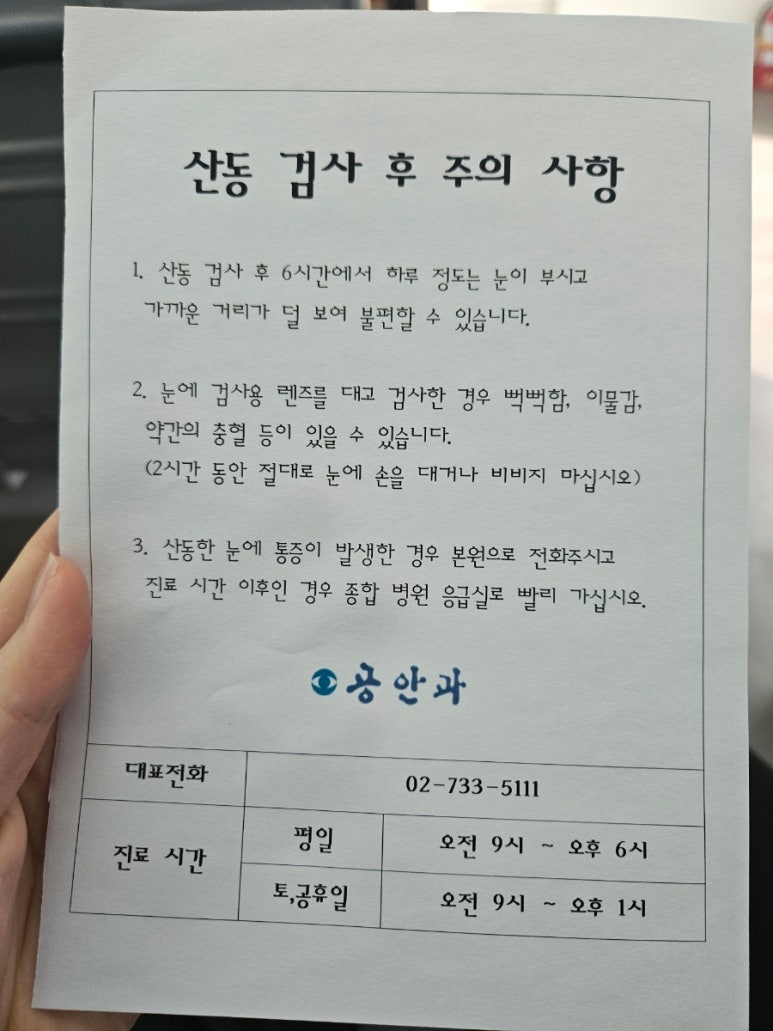 산동 검사 후 주의 사항
1. 산동 검사 후 6시간에서 하루 정도는 눈이 부시고
가까운 거리가 덜 보여 불편할 수 있습니다.
2. 눈에 검사용 렌즈를 대고 검사한 경우 뻑뻑함, 이물감,
약간의 충혈 등이 있을 수 있습니다.
(2시간 동안 절대로 눈에 손을 대거나 비비지 마십시오)
3. 산동한 눈에 통증이 발생한 경우 본원으로 전화주시고
진료 시간 이후인 경우 종합 병원 응급실로 빨리 가십시오.
공안과
대표전화 02-733-5111
진료 시간 평일 오전 9시 ~ 오후 6시
토,공휴일 오전 9시 ~ 오후 1시